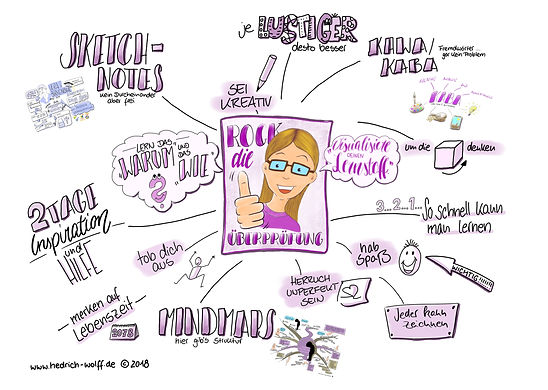 je LUSTIGER
desto besser
SKETCH-
NOTES
kein Durcheinander
aber frei
KAWA/
KABA
Fremdwörter...
gar kein Problem
KABA
SEI
KREATIV
ROCK
die
ÜBERPRÜFUNG
LERN DAS
"WARUM" UND DAS
"WIE"
?
"Visualisiere
DEINEN
Lernstoff"
um die
denken
3...2...1...
So schnell kann
man lernen
2 TAGE
Inspiration
und
HILFE
tob dich
aus
hab
Spaß
WICHTIG!!!!!
HERRLICH
UNPERFEKT
SEIN
merken auf
LEBENSZEIT
2078
MINDMAPS
hier gibs Struktur
Jeder kann
zeichnen
www.hedrich-wolff.de © 2018